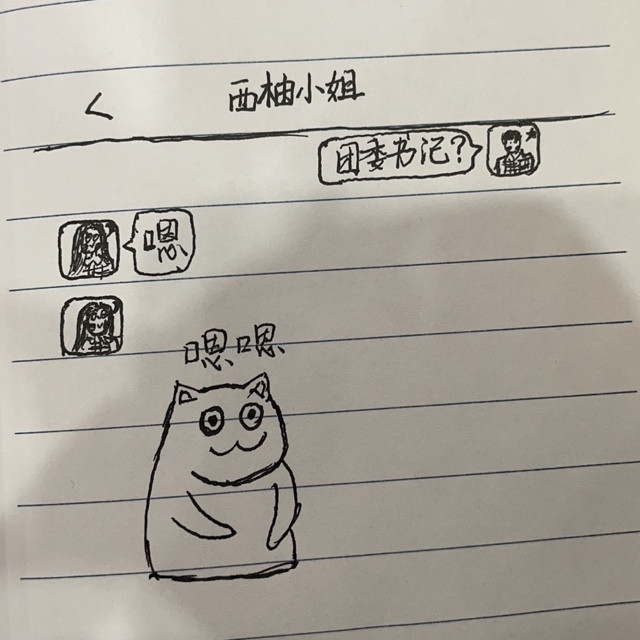 西柚小姐
团委书记?
嗯
嗯嗯